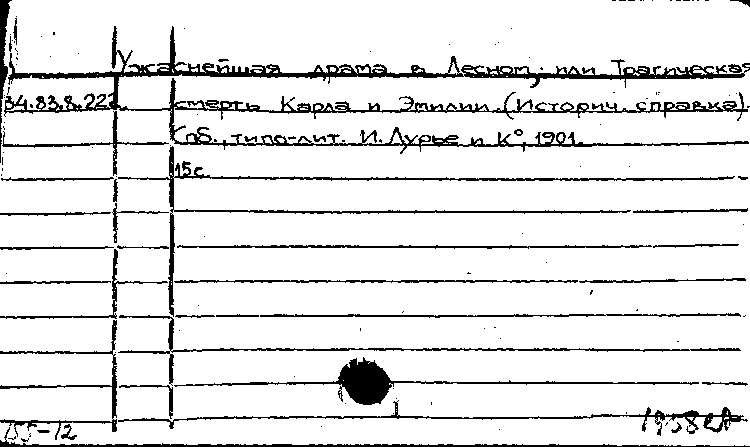 Ужаснейшая драма в Лесном, или Трагическая
34.83.8.222. смерть Карла и Эмилии. (Историч. справка).
Спб., типо-лит. И. Лурье и К°, 1901.
15 с.
155-12